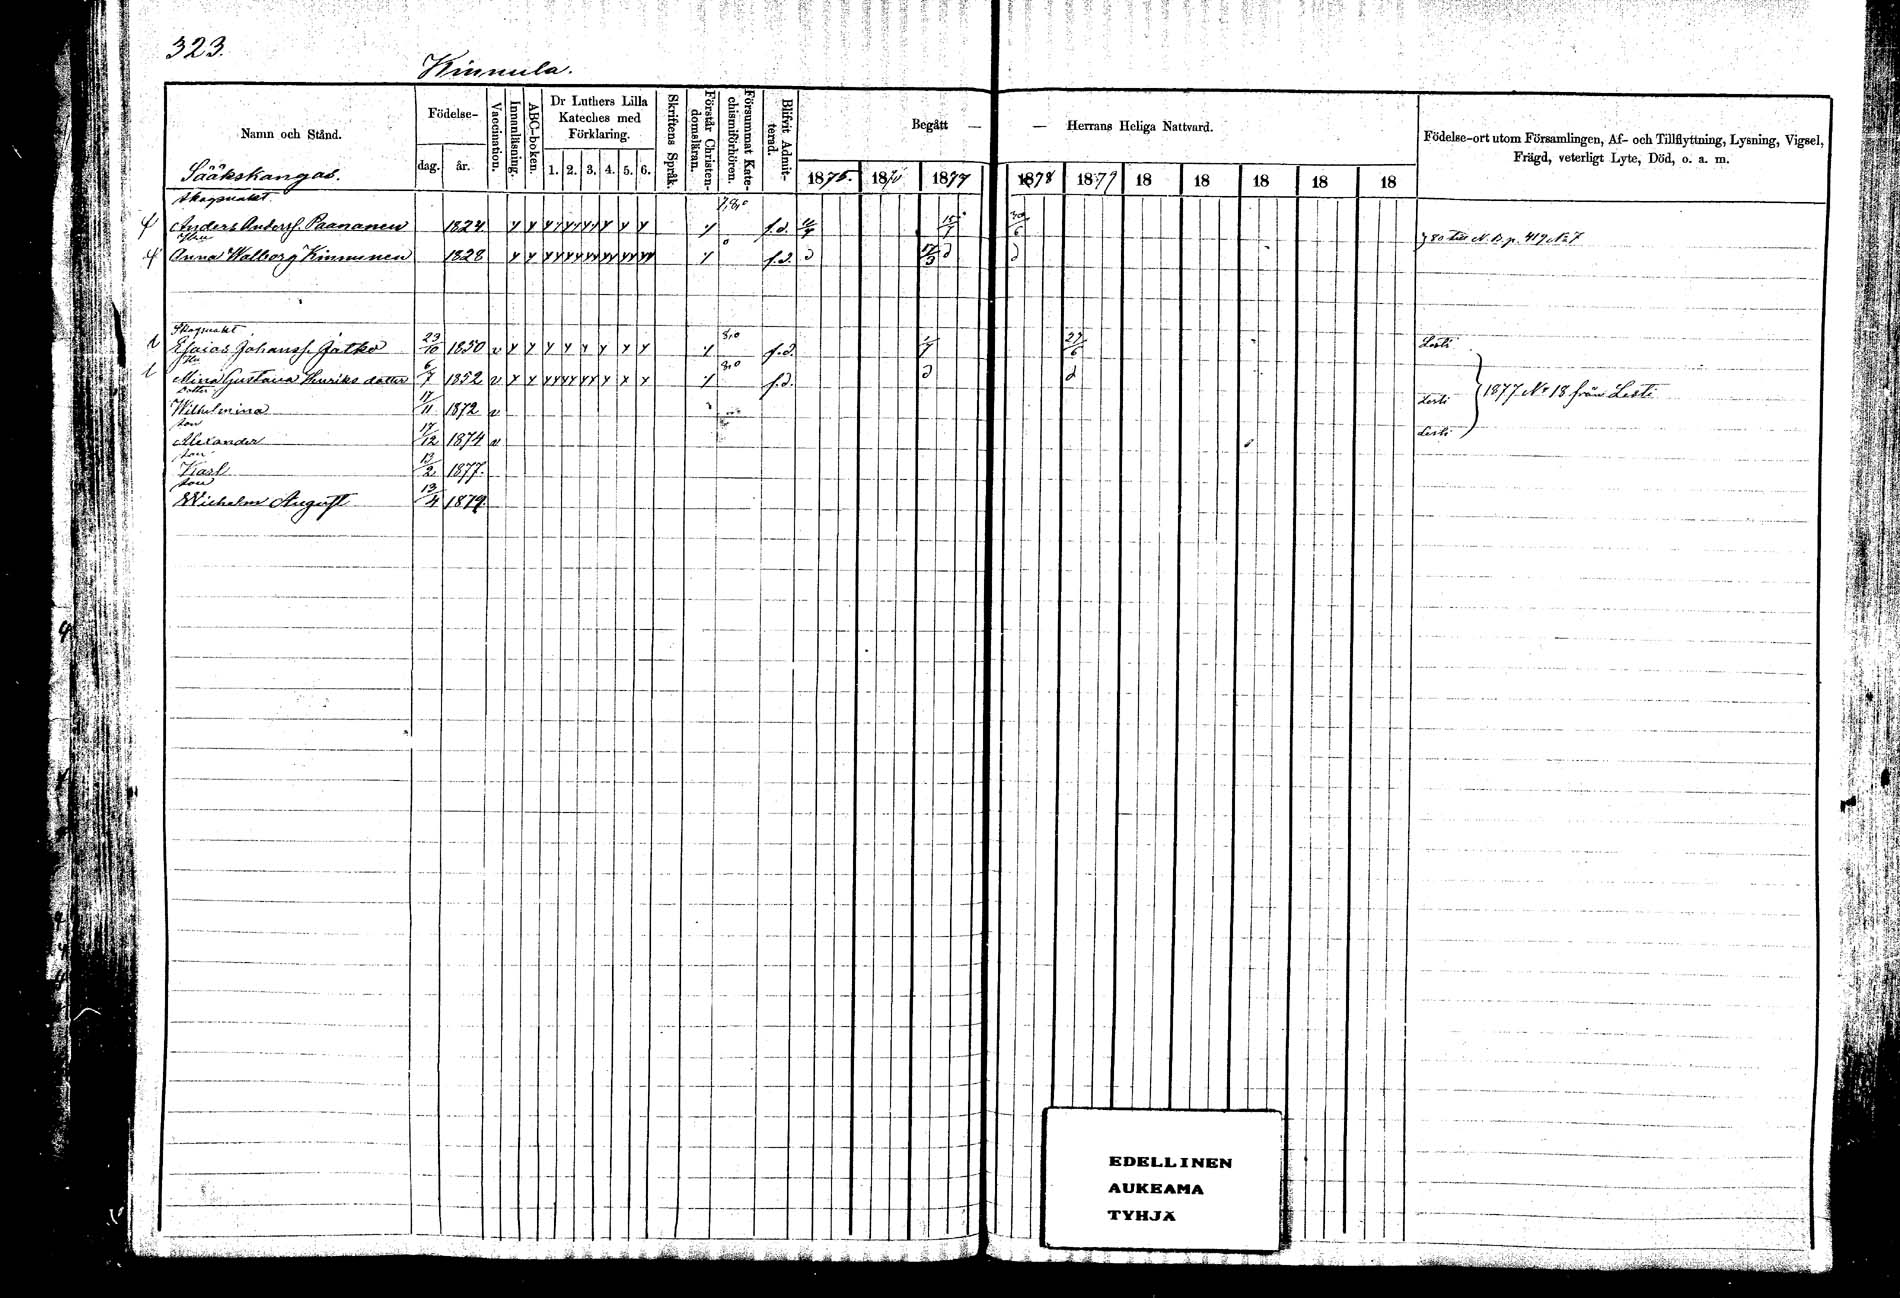 323.
Kinnula.
Namn och Stånd.
Födelse-
dag.
år.
Vaccination.
Innanläsning.
ABC-boken.
Dr Luthers Lilla
Kateches med
Förklaring.
1. 2. 3. 4. 5. 6.
Skriftens Språk.
Förstår Christen-
domsläran.
Försummat Kate-
chismiförhören.
Blifvit Admit-
terad.
Begått — — Herrans Heliga Nattvard.
1875. 1876 1877 1878 1879 18 18 18 18 18
Födelse-ort utom Församlingen, Af- och Tillflyttning, Lysning, Vigsel,
Frägd, veterligt Lyte, Död, o. a. m.
Sääkskangas.
Skogvakt
Anders Anderss. Paananen 1824 f.d. 15/7 30/6
80 till N.B. p. 419 No 7
Anna Walborg Kinnunen 1828 f.d.
Skogvakt
Esaias Johanss. Jatko 23/10 1850 v f.d. 1/7 29/6 Lesti
Mina Gustava Henriks dotter 6/7 1852 v f.d.
1877 No 18 från Lesti
dotter
Wilhelmina 17/11 1872 v Lesti
son
Alexander 17/12 1874 v Lesti
son
Karl 13/2 1877.
son
Wilhelm August 13/4 1879.
EDELLINEN
AUKEAMA
TYHJÄ